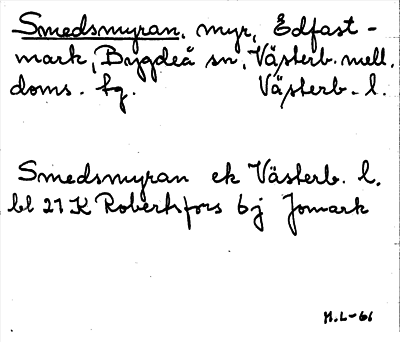 Smedsmyran, myr, Edfast-
mark, Bygdeå sn, Västerb. mell.
doms. fg. Västerb. l.
Smedsmyran ek Västerb. l.
bl 21 K Robertsfors 6j Jomark
M.L-61